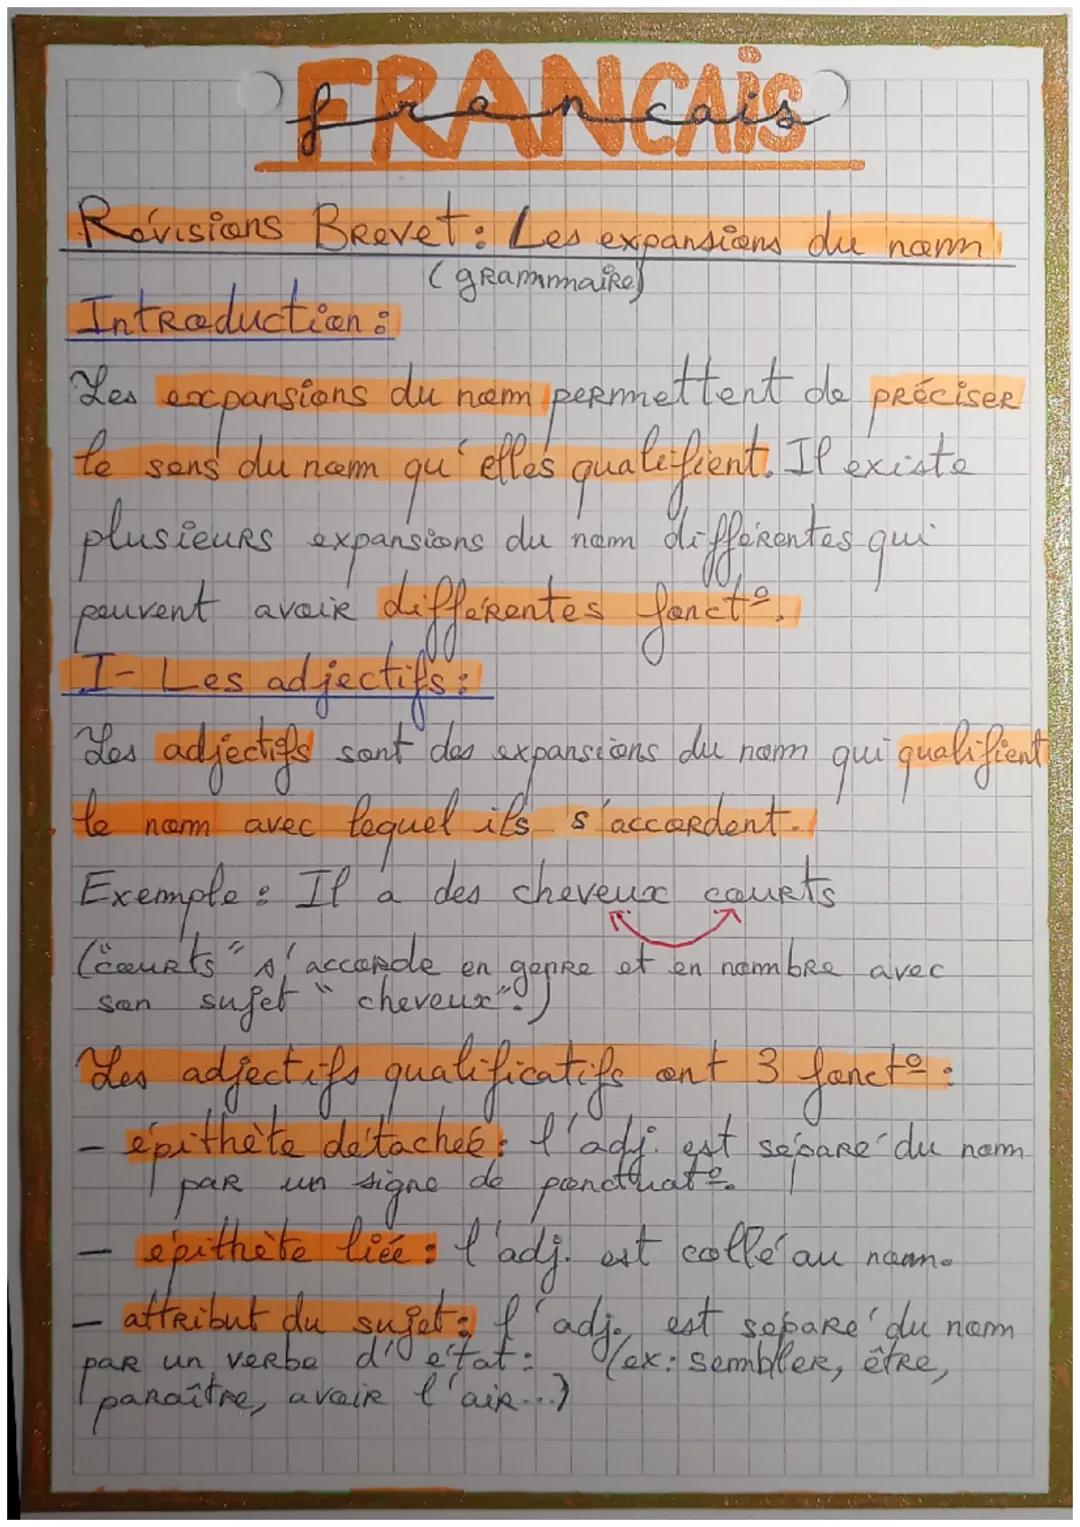 FRANCAIS
francais
Révisions Brevet : Les expansions du nom
(grammaire)
Introduction :
Les expansions du nom permettent de préciser
le sens du nom qu'elles qualifient. Il existe
plusieurs expansions du nom différentes qui
peuvent avoir différentes fonct°.
I- Les adjectifs :
Les adjectifs sont des expansions du nom qui qualifient
le nom avec lequel ils s'accordent.
Exemple : Il a des cheveux courts
("courts" s'accorde en genre et en nombre avec
son sujet "cheveux".)
Les adjectifs qualificatifs ont 3 fonct° :
- épithète détachée : l'adj. est séparé du nom
par un signe de ponctuat°.
- épithète liée : l'adj. est collé au nom.
- attribut du sujet : l'adj. est séparé du nom
par un verbe d'état : (ex : sembler, être,
paraître, avoir l'air...)